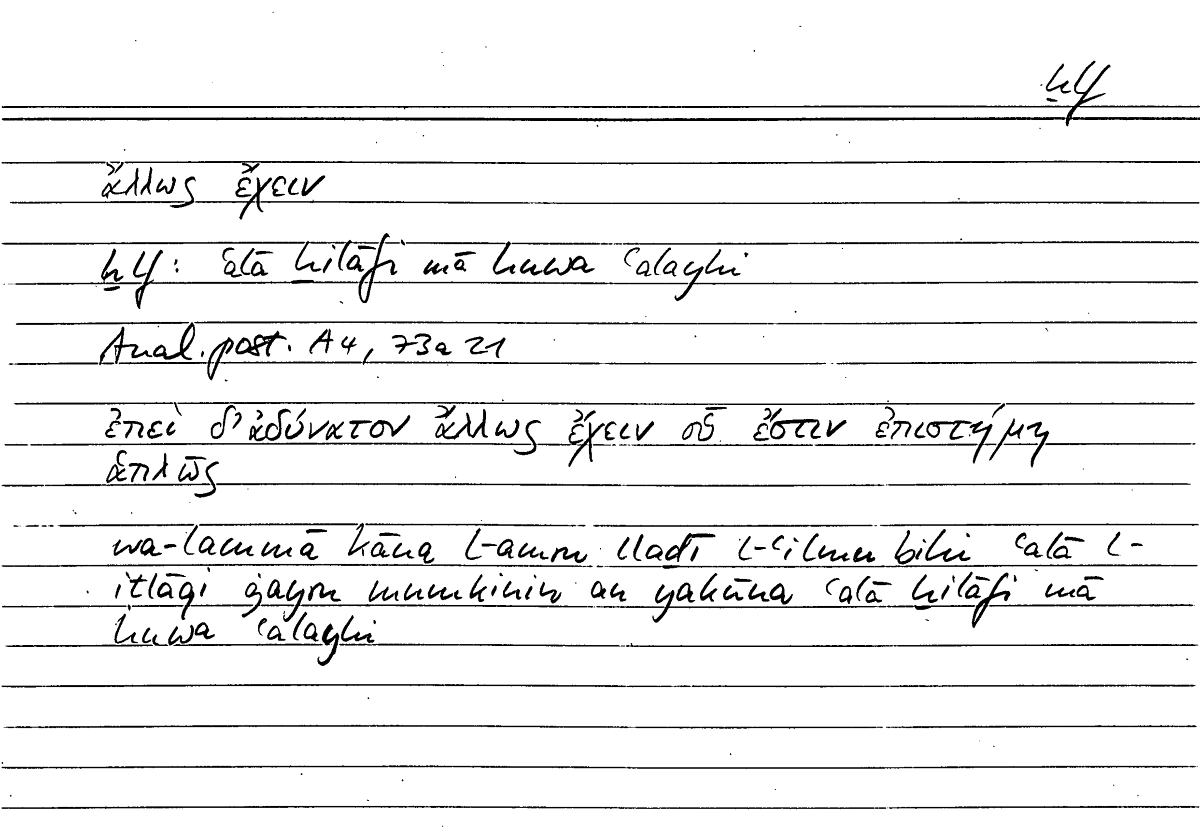 ḫlf
ἄλλως ἔχειν
ḫlf: ʿalā ḫilāfi mā huwa ʿalayhi
Anal. post. A 4, 73a21
ἐπεὶ δ' ἀδύνατον ἄλλως ἔχειν οὗ ἔστιν ἐπιστήμη
ἁπλῶς
wa-lammā kāna l-amru lladī l-ʿilmu bihi ʿalā l-
iṭlāqi ġayru mumkinin an yakūna ʿalā ḫilāfi mā
huwa ʿalayhi